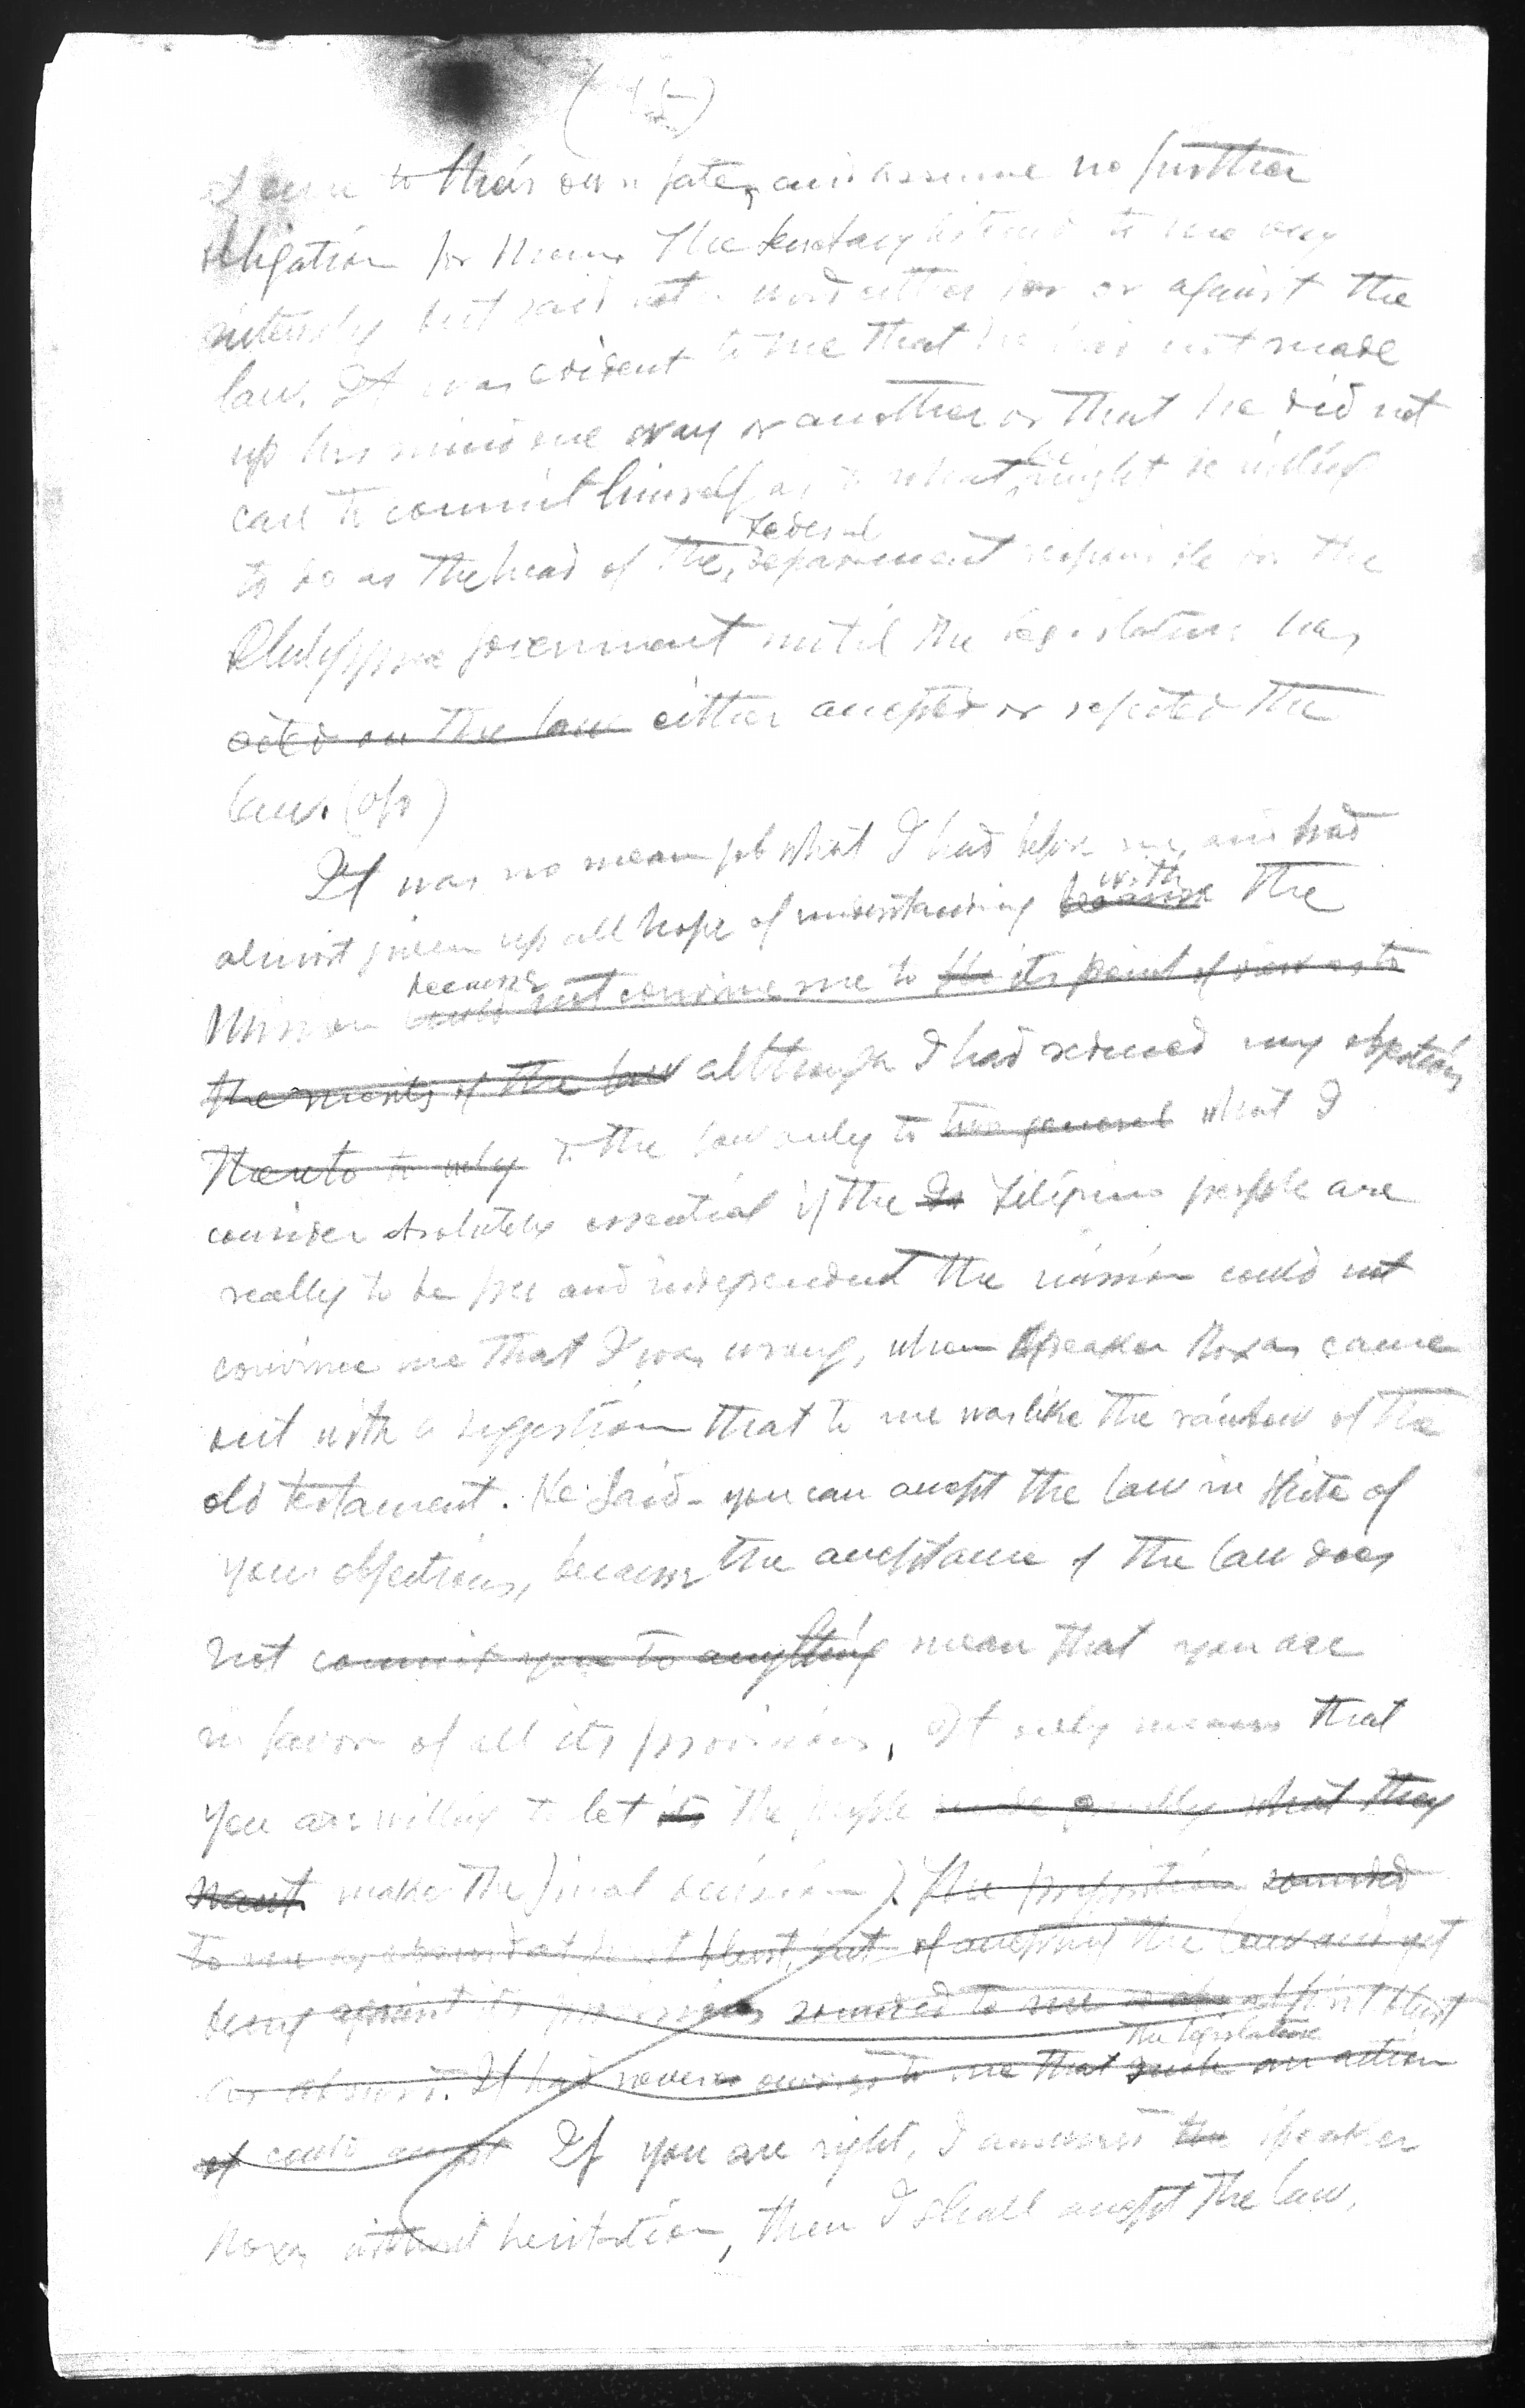 (15)
to their own fate, and assume no further
obligation for them. The Secretary listened to me very
intensely but said not a word either for or against the
law. It was evident to me that he had not made
up his mind one way or another or that he did not
care to commit himself as to what he might be willing
to do as the head of the Federal department responsible for the
Philippine government until the legislature has
acted on the law either accepted or rejected the
law. (over)
It was no mean job what I had before me, and had
almost given up all hope of understanding because with the
Mission because could not convince me to the its point of view as to
the merits of the law although I had reduced my objections
thereto to only to the law only to two general what I
consider absolutely essential if the Filipino people are
really to be free and independent the mission could not
convince me that I was wrong, when Speaker Roxas came
out with a suggestion that to me was like the rainbow of the
old testament. He said - you can accept the law in spite of
your objections, because the acceptance of the law does
not commit you to anything mean that you are
in favor of all its provisions, It only means that
you are willing to let the people decide what they
want make the final decision). The proposition sounded
to me absurd at first blush, but of accepting the law and yet
being against its provisions sounded to me at first blush
as absurd. It had never occurred to me that the legislature such an action
of could accept If you are right, I answered the Speaker
Roxas without hesitation, then I shall accept the law.